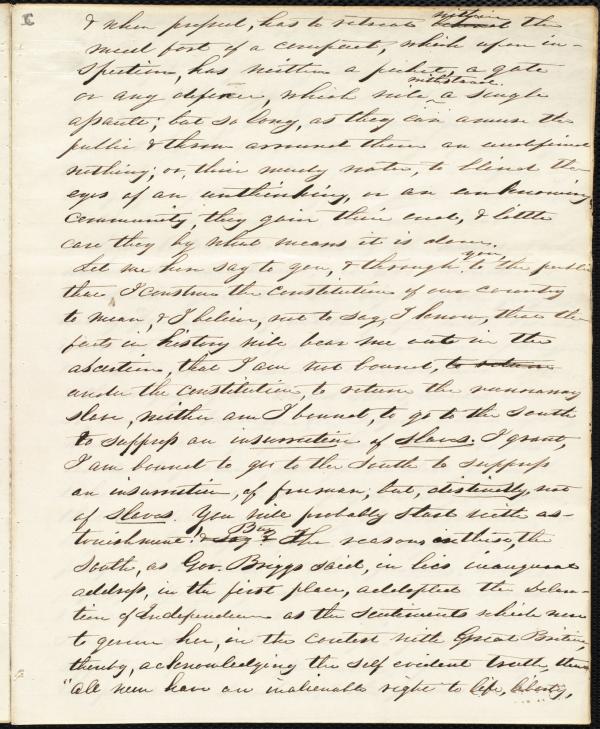 & when pressed, has to retreat within the
meed fort of a compact, which upon in-
spection, has neither a picket, a gate
or any defence, which will withstand a single
assault; but so long, as they can amuse the
public & throw around them an undefined
nothing; or, their muddy water, to blind the
eyes of an unthinking, or an unknowing
community, they gain their end, & little
care they by what means it is done.
Let me here say to you, & through you to the public
that I construe the constitution of our country
to mean, & I believe, not to say, I know, that the
facts in history will bear me out in the
assertion, that I am not bound, to return
under the constitution, to return the runaway
slave, neither am I bound, to go to the South
to suppress an insurrection of slaves. I grant,
I am bound to go to the South to suppress
an insurrection, of freemen; but, distinctly, not
of slaves. You will probably start with as-
tonishment & say? But The reason is this, the
South, as Gov. Briggs said, in his inaugural
address, in the first place, addopted the Declara-
tion of Independence as the sentiments which were
to govern her, in the contest with Great Britain,
thereby, acknowledging the self evident truth, that
"all men have an inalienable right to life, liberty,